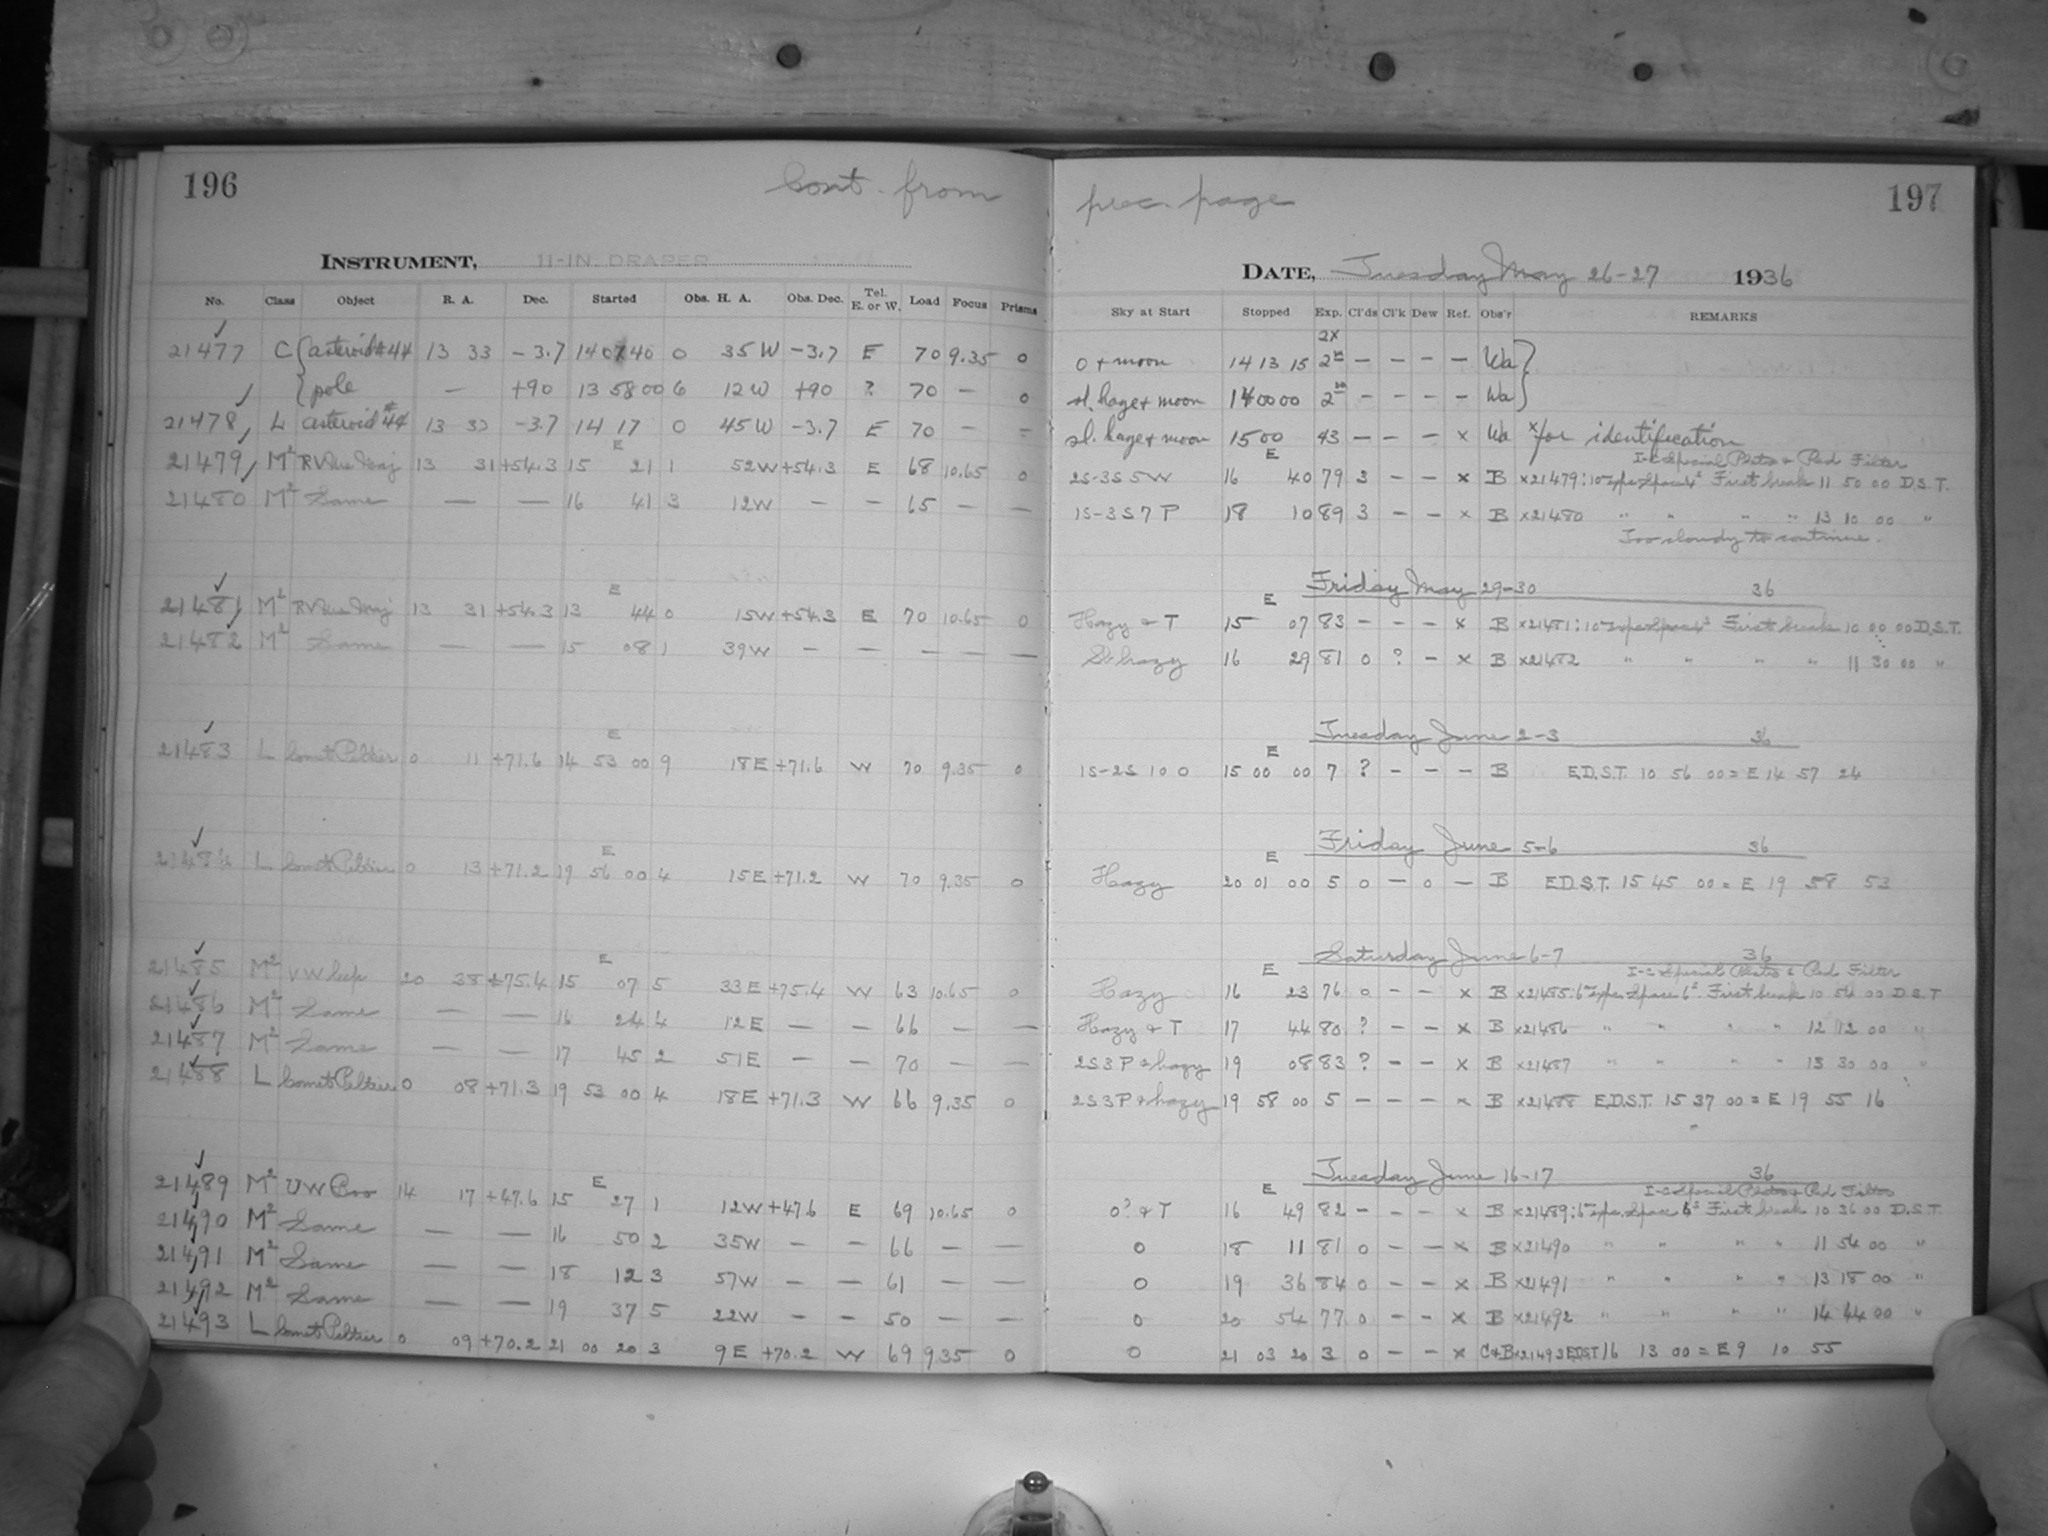 196 Cont. from
INSTRUMENT, 11-IN. DRAPER
No. Class Object R. A. Dec. Started Obs. H. A. Obs. Dec. Tel. E. or W. Load Focus Prisms
21477 C asteroid #44 13 33 -3.7 14 07 40 0 35 W -3.7 E 70 9.35 0
pole — +90 13 58 00 6 12 W +90 ? 70 — 0
21478 L asteroid #44 13 33 -3.7 14 17 0 45 W -3.7 E 70 — –
E
21479 M² RV Urs Maj 13 31 +54.3 15 21 1 52W +54.3 E 68 10.65 0
21480 M² Same — — 16 41 3 12W — — 65 — —
E
21481 M² RV Urs Maj 13 31 +54.3 13 44 0 15W +54.3 E 70 10.65 0
21482 M² Same — — 15 08 1 39W — — — — —
E
21483 L Comet Peltier 0 11 +71.6 14 53 00 9 18E +71.6 W 70 9.35 0
E
21484 L Comet Peltier 0 13 +71.2 19 56 00 4 15E +71.2 W 70 9.35 0
E
21485 M² VW Cep 20 38 +75.4 15 07 5 33E +75.4 W 63 10.65 0
21486 M² Same — — 16 24 4 12E — — 66 — —
21487 M² Same — — 17 45 2 51E — — 70 — —
21488 L Comet Peltier 0 08 +71.3 19 53 00 4 18E +71.3 W 66 9.35 0
E
21489 M² UW Boo 14 17 +47.6 15 27 1 12W +47.6 E 69 10.65 0
21490 M² Same — — 16 50 2 35W — — 66 — —
21491 M² Same — — 18 12 3 57W — — 61 — —
21492 M² Same — — 19 37 5 22W — — 50 — —
21493 L Comet Peltier 0 09 +70.2 21 00 20 3 9E +70.2 W 69 9.35 0
prec. page 197
DATE, Tuesday May 26-27 1936
Sky at Start Stopped Exp. Cl'ds Cl'k Dew Ref. Obs'r REMARKS
2X
0 + moon 14 13 15 2 — — — — Wa
sl. haze + moon 14 00 00 2 — — — — Wa
sl. haze + moon 15 00 43 — — — x Wa x for identification
E I-C Special Plates & Red Filter
2S-3S 5W 16 40 79 3 — — x B x21479: 10 expo. Space First break 11 50 00 D.S.T.
1S-3S 7 P 18 10 89 3 — — x B x21480 " " " " 13 10 00 "
Too cloudy to continue.
Friday May 29-30 36
E
Hazy & T 15 07 83 — — — x B x21481: 10 expo Space First break 10 00 00 D.S.T.
Sl. hazy 16 29 81 0 ? — x B x21482 " " " " 11 30 00 "
Tuesday June 2-3 36
E
1S-2S 10 0 15 00 00 7 ? — — — B E.D.S.T. 10 56 00 = E 14 57 24
Friday June 5-6 36
E
Hazy 20 01 00 5 0 — 0 — B E.D.S.T. 15 45 00 = E 19 58 53
Saturday June 6-7 36
E I-C Special Plates & Red Filter
Hazy 16 23 76 0 — — x B x21485: 6 expo. Space 6 First break 10 54 00 D.S.T
Hazy & T 17 44 80 ? — — x B x21486 " " " " 12 12 00 "
2S 3P & hazy 19 08 83 ? — — x B x21487 " " " " 13 30 00 "
2S 3P & hazy 19 58 00 5 — — — x B x21488 E.D.S.T. 15 37 00 = E 19 55 16
Tuesday June 16-17 36
E I-C Special Plates & Red Filter
0? & T 16 49 82 — — — x B x21489: 6 expo. Space First break 10 36 00 D.S.T.
0 18 11 81 0 — — x B x21490 " " " " 11 54 00 "
0 19 36 84 0 — — x B x21491 " " " " 13 18 00 "
0 20 54 77 0 — — x B x21492 " " " " 14 44 00 "
0 21 03 20 3 0 — — x C+B x21493 EDST 16 13 00 = E 9 10 55